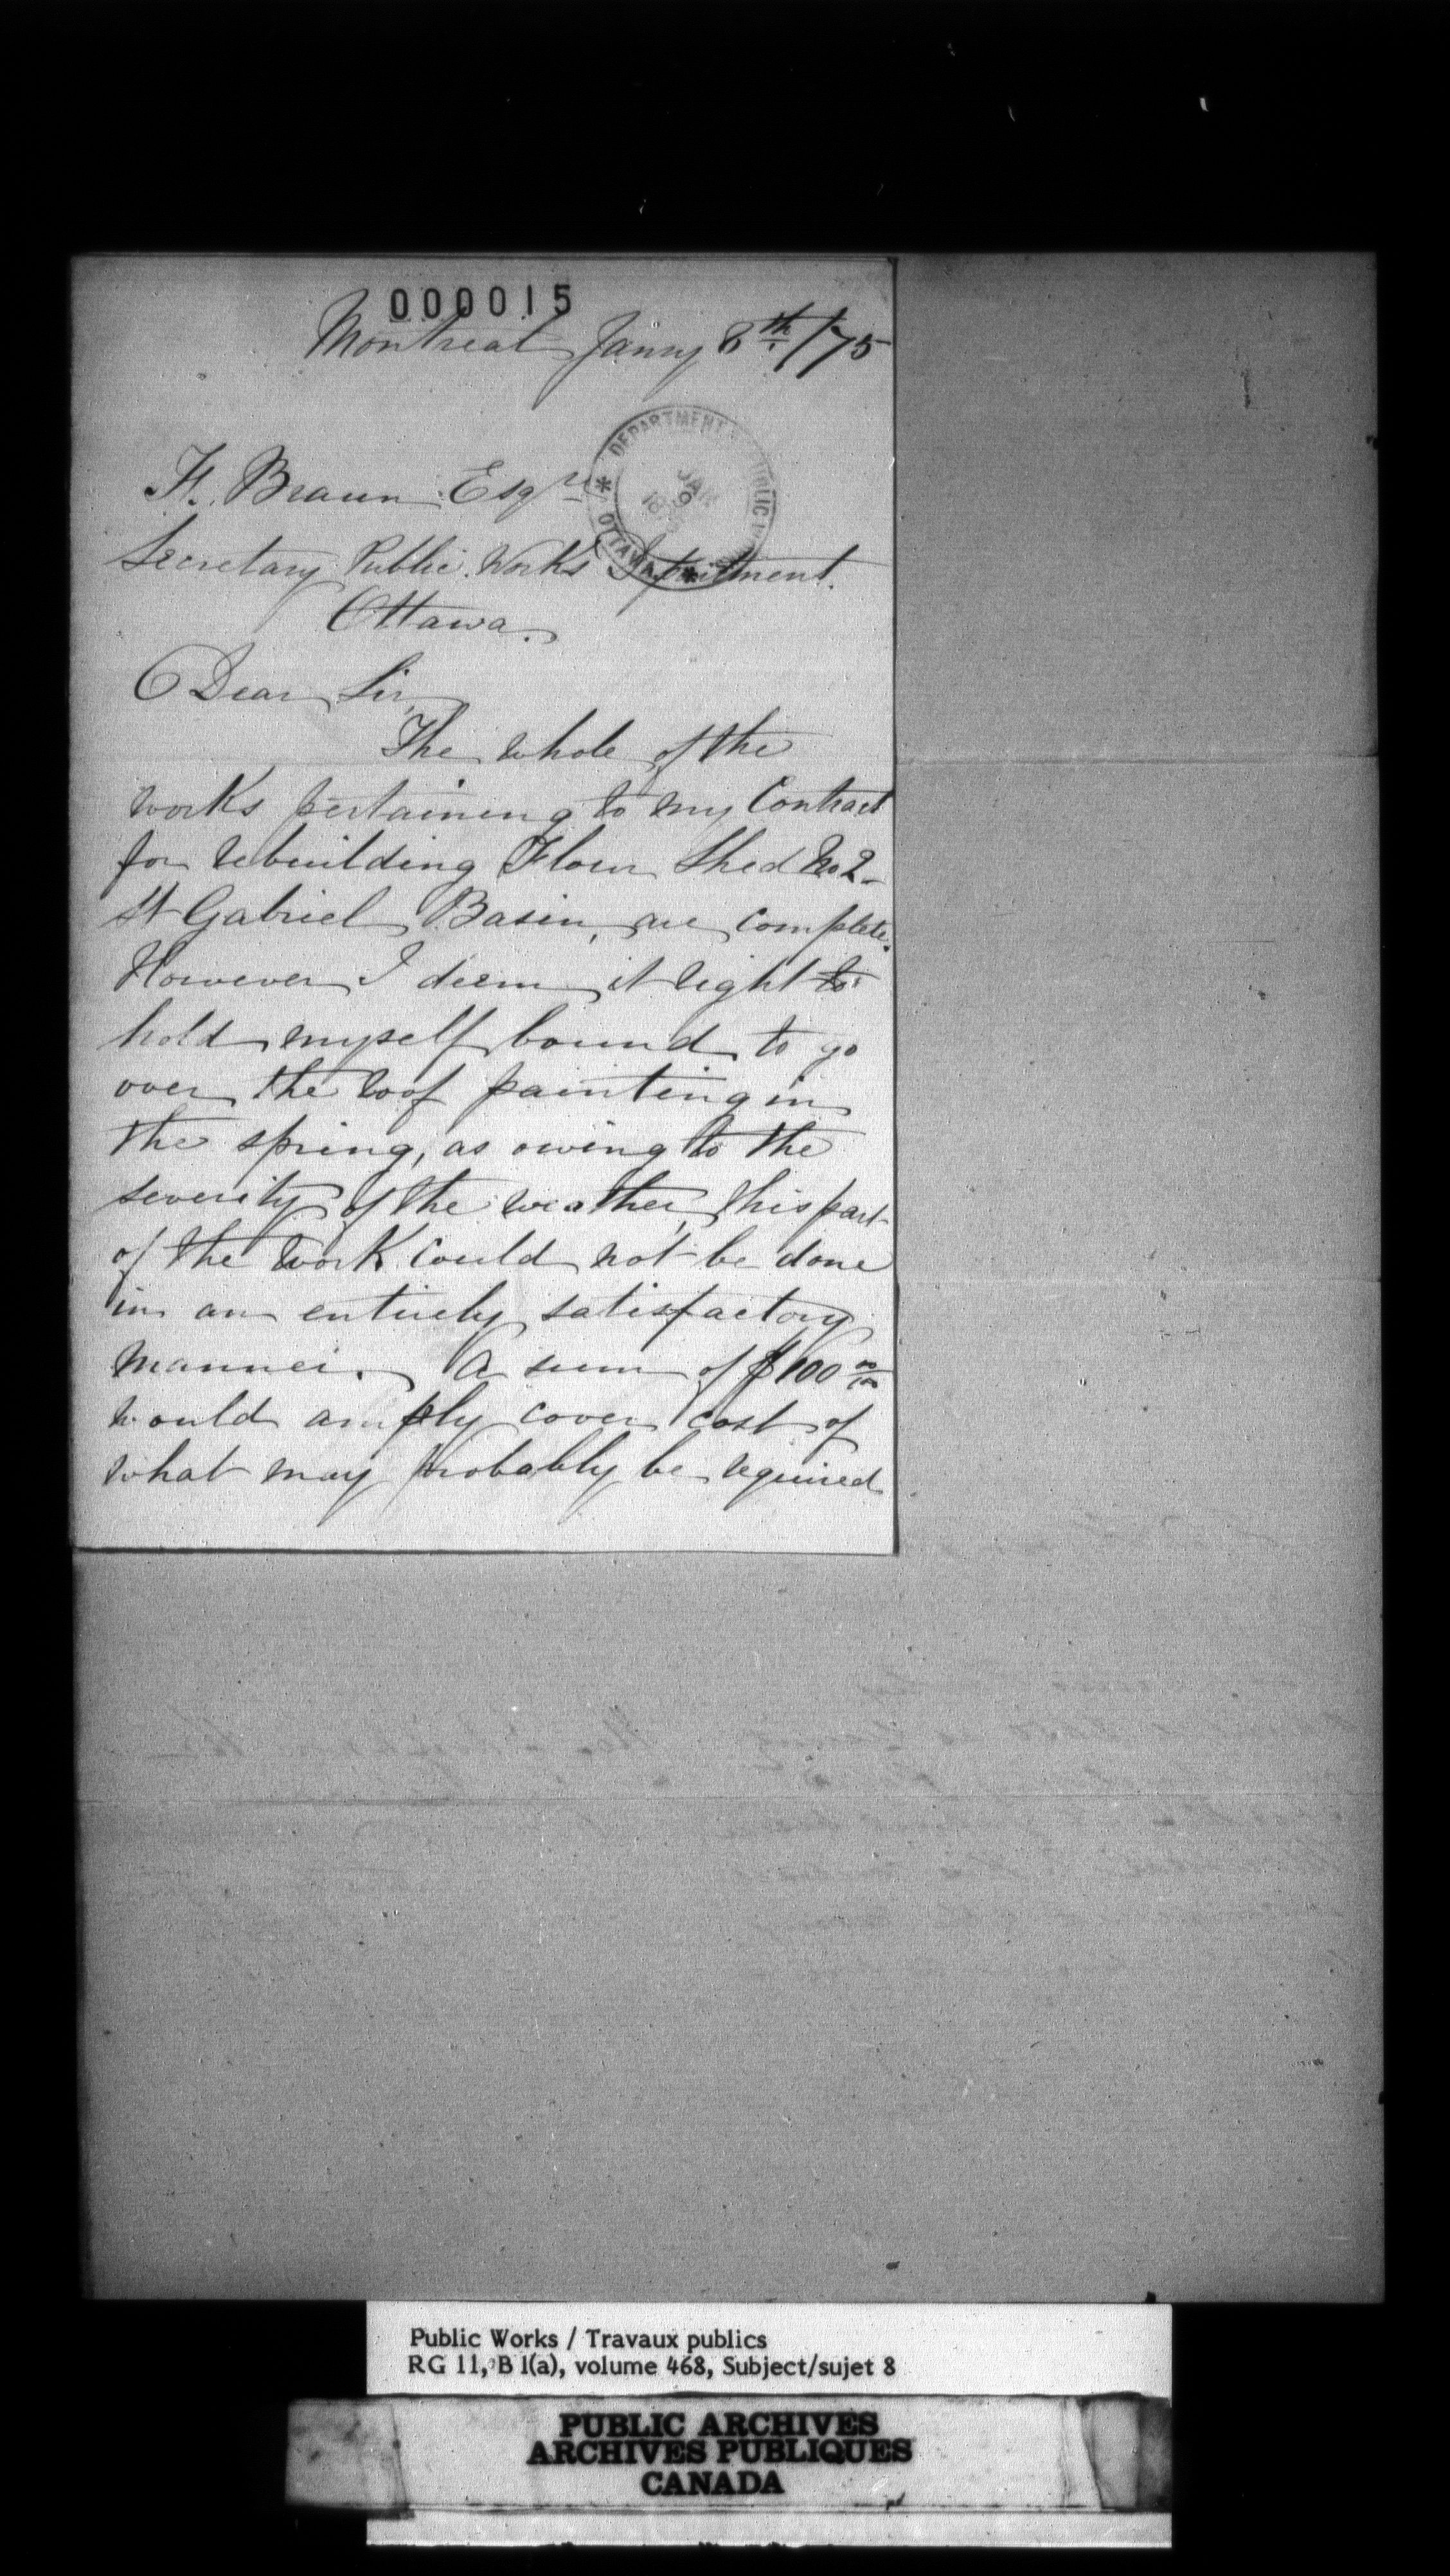 000015
Montreal Janry 8th/75
F. Braun Esqre
DEPARTMENT PUBLIC
JAN
9
18
OTTAWA
Secretary Public Works Department.
Ottawa.
Dear Sir,
The whole of the
works pertaining to my Contract
for rebuilding Flour Shed No 2
St Gabriel Basin, are complete.
However I deem it right to
hold myself bound to go
over the roof painting in
the spring, as owing to the
severity of the weather, this part
of the work could not be done
in an entirely satisfactory
manner. A sum of $100 00/100
would amply cover cost of
what may probably be required
Public Works / Travaux publics
RG 11, B 1(a), volume 468, Subject/sujet 8
PUBLIC ARCHIVES
ARCHIVES PUBLIQUES
CANADA